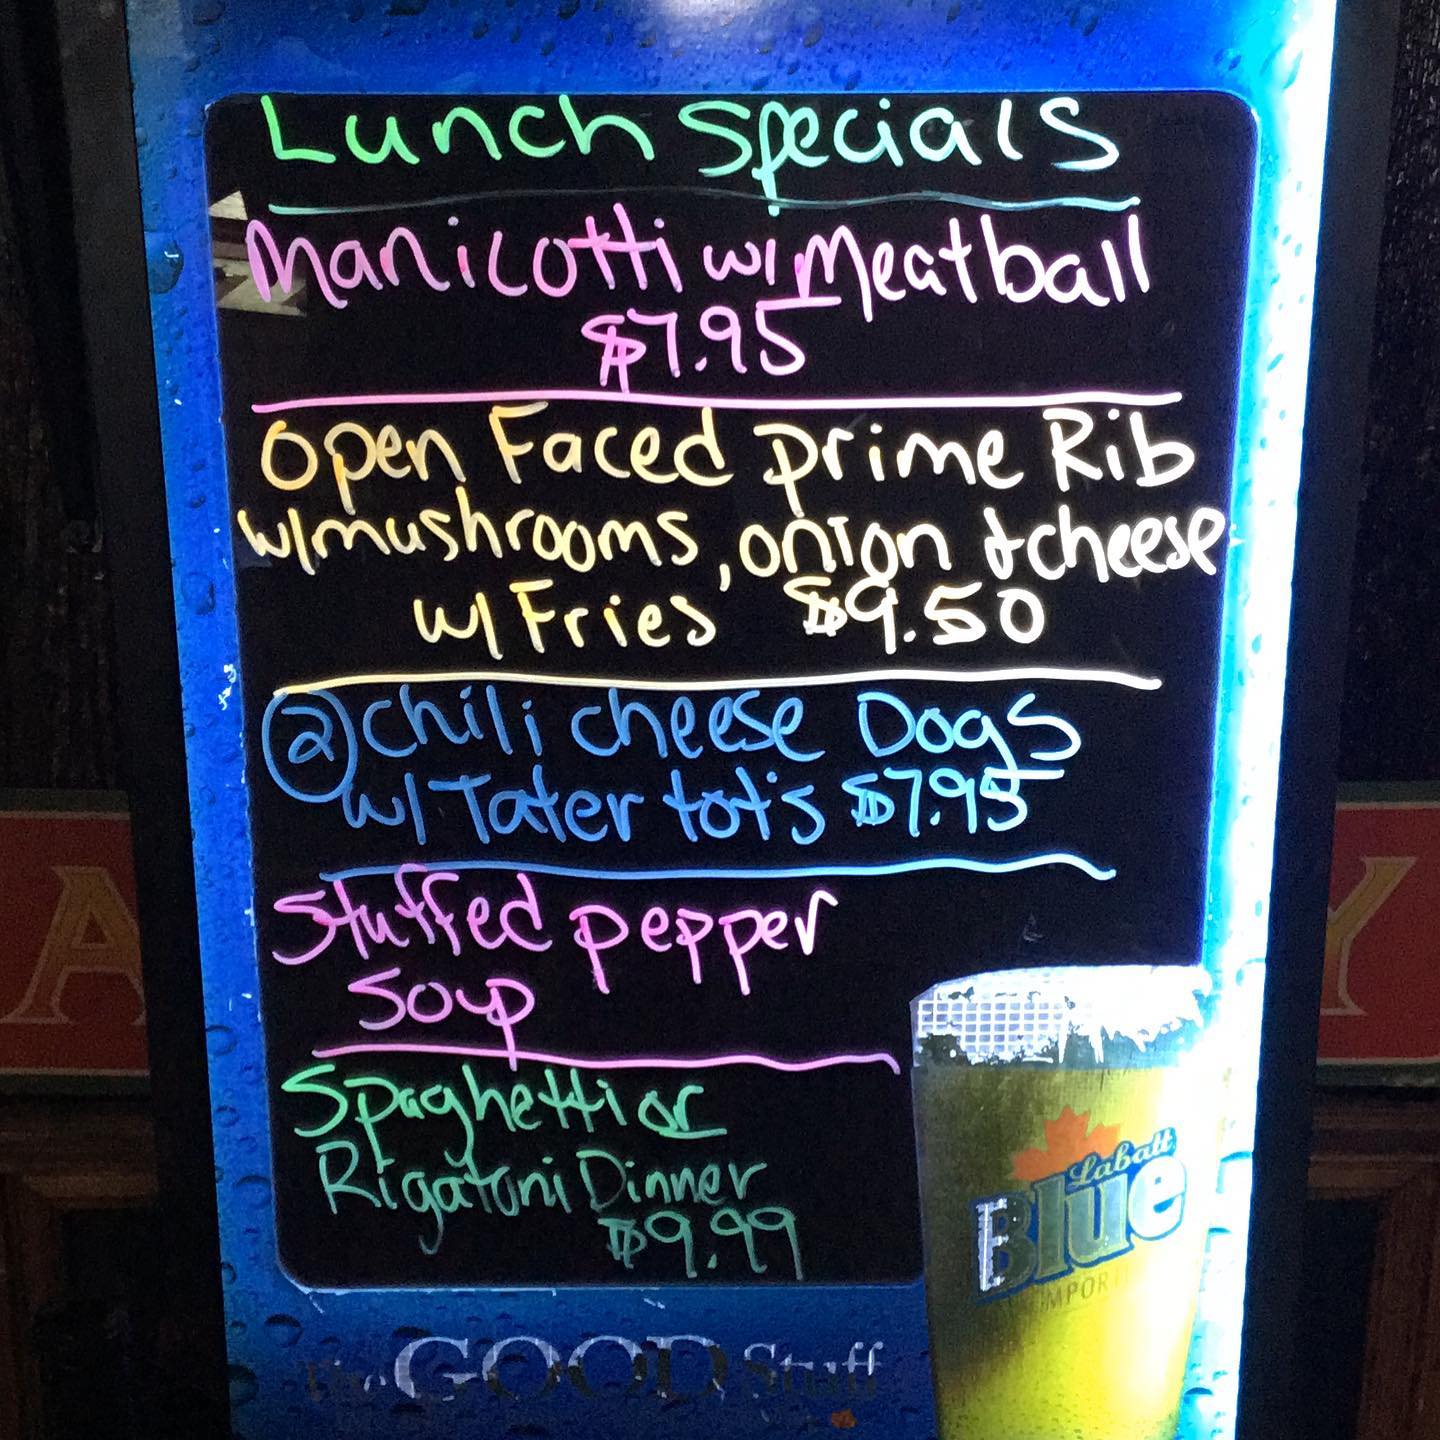 Lunch Specials
Manicotti w/ Meatball
$7.95
Open Faced Prime Rib
w/mushrooms, onion & cheese
w/ Fries $9.50
2 Chili cheese Dogs
w/ Tater tot's $7.95
Stuffed pepper
Soup
Spaghetti or
Rigatoni Dinner
$9.99
A
Y
Labatt
Blue
IMPORT
The GOOD Stuff